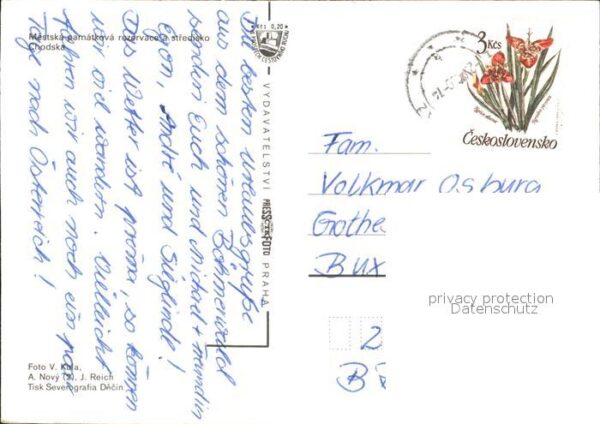 Městská památková rezervace a středisko
Chodska
Kčs 0,20
3 Kčs
Československo
Die besten Urlaubsgrüße
aus dem schönen Böhmerwald
senden Euch und Michael +
Egon, André und Sieglinde!
Das Wetter ist prima, so können
wir viel wandern. Vielleicht
fahren wir auch noch ein paar
Tage nach Österreich!
VYDAVATELSTVÍ PRESSFOTO PRAHA
Fam.
Volkmar Osburg
Gothe
Bux
2
B
privacy protection
Datenschutz
Foto V. Kůla,
A. Nový (2), J. Reich
Tisk Severografia Děčín